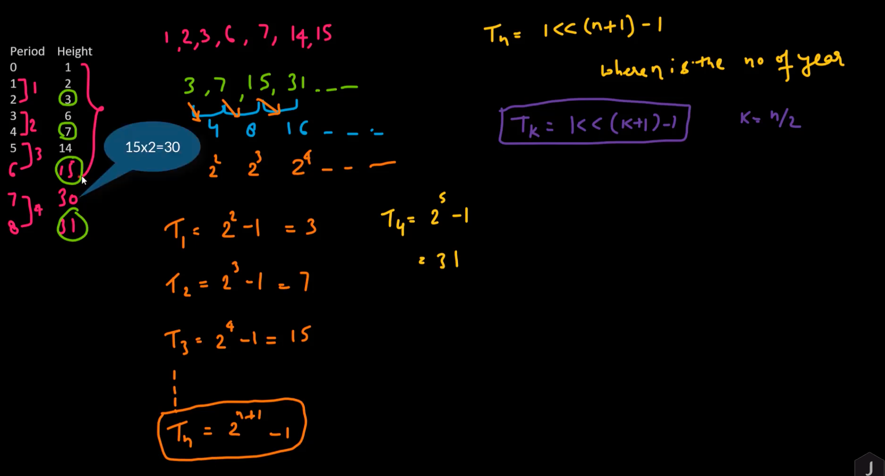 Period Height
0 1
1 2
2 3
3 6
4 7
5 14
6 15
7 30
8 31
1
2
3
4
15x2=30
1,2,3,6,7,14,15
3,7,15,31 ---
4 8 16 ---
2² 2³ 2⁴ ---
T₁ = 2² -1 = 3
T₂ = 2³ -1 = 7
T₃ = 2⁴ -1 = 15
Tn = 2ⁿ⁺¹ -1
T₄ = 2⁵ -1
= 31
Tn = 1<<(n+1) -1
where n is the no of year
Tk = 1<<(k+1)-1
k = n/2
J